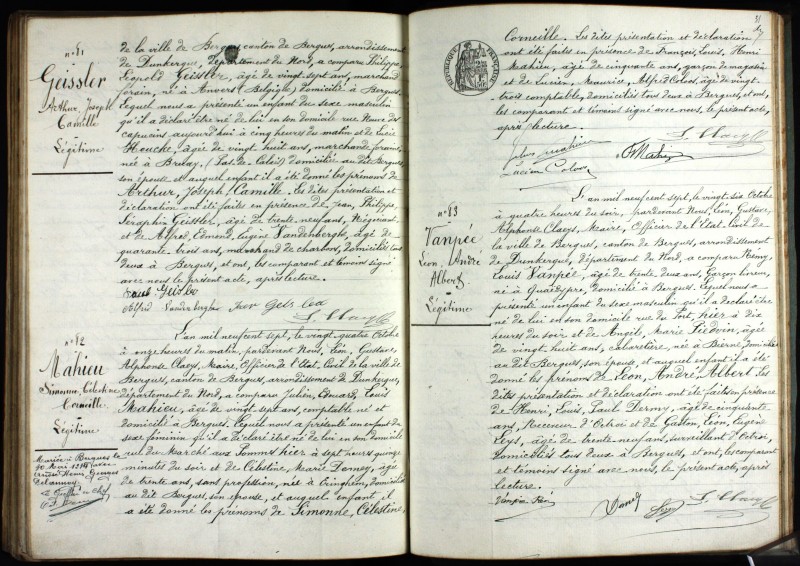 n° 81
Geissler
Arthur, Joseph
Camille
Légitime
de la ville de Bergues, canton de Bergues, arrondissement
de Dunkerque, département du Nord, a comparu Philippe
Léopold Geissler, âgé de vingt sept ans, marchand
forain, né à Anvers (Belgique) domicilié à Bergues
lequel nous a présenté un enfant du sexe masculin
qu'il a déclaré être né de lui en son domicile rue Neuve des
capucins aujourd'hui à cinq heures du matin et de Lucie
Houcke, âgée de vingt huit ans, marchande foraine,
née à Bruay, (Pas de Calais) domiciliée au dit Bergues
son épouse et auquel enfant il a été donné les prénoms de
Arthur, Joseph, Camille. Les dites présentation et
déclaration ont été faites en présence de Jean, Philippe,
Séraphin Geissler, âgé de trente neuf ans, Négociant
et de Alfred, Edmond, Eugène Vandenberghe, âgé de
quarante trois ans, marchand de charbons, domiciliés tous
deux à Bergues, et ont, les comparant et témoins signé
avec nous le présent acte, après lecture.
n° 82
Mahieu
Simonne, Célestine
Camille
Légitime
Mariée à Bergues le
L'an mil neuf cent sept, le vingt quatre Octobre
à onze heures du matin, pardevant Nous, Léon, Gustave,
Alphonse Claeys, Maire, Officier de l'Etat-Civil de la ville de
Bergues, canton de Bergues, arrondissement de Dunkerque,
département du Nord, a comparu Julien, Edouard, Louis
Mahieu, âgé de vingt sept ans, comptable né et
domicilié à Bergues, lequel nous a présenté un enfant du
sexe féminin qu'il a déclaré être né de lui en son domicile
rue du Marché aux Pommes hier à sept heures quinze
minutes du soir et de Célestine, Marie Donney, âgée
de trente ans, sans profession, née à Cringhem, domiciliée
au dit Bergues, son épouse, et auquel enfant il
a été donné les prénoms de Simonne, Célestine,
RÉPUBLIQUE FRANÇAISE
Corneille. Les dites présentation et déclaration
ont été faites en présence de François, Louis, Henri
Mahieu, âgé de cinquante ans, garçon de magasin
et de Lucien, Maurice, Alfred Colove, âgé de vingt
trois comptable, domiciliés tous deux à Bergues, et ont,
les comparant et témoins signé avec nous, le présent acte,
après lecture.
n° 83
Vanpée
Léon, André
Albert
Légitime
L'an mil neuf cent sept, le vingt six Octobre
à quatre heures du soir, pardevant Nous, Léon, Gustave,
Alphonse Claeys, Maire, Officier de l'Etat-Civil de
la ville de Bergues, canton de Bergues, arrondissement
de Dunkerque, département du Nord, a comparu Rémy,
Louis Vanpée, âgé de trente deux ans, Garçon livreur,
né à Quaëdypre, domicilié à Bergues, lequel nous a
présenté un enfant du sexe masculin qu'il a déclaré être
né de lui en son domicile rue du Port, hier à dix
heures du soir et de Angèle, Marie Liévin, âgée
de vingt huit ans, culottière, née à Bierne, domiciliée
au dit Bergues, son épouse, et auquel enfant il a été
donné les prénoms de Léon, André, Albert. Les
dites présentation et déclaration ont été faites en présence
de Henri, Louis, Paul Dermy, âgé de cinquante
ans, Receveur d'Octroi et de Gaston, Léon, Eugène
Leys, âgé de trente neuf ans, surveillant d'Octroi,
domiciliés tous deux à Bergues, et ont, les comparant
et témoins signé avec nous, le présent acte, après
lecture.